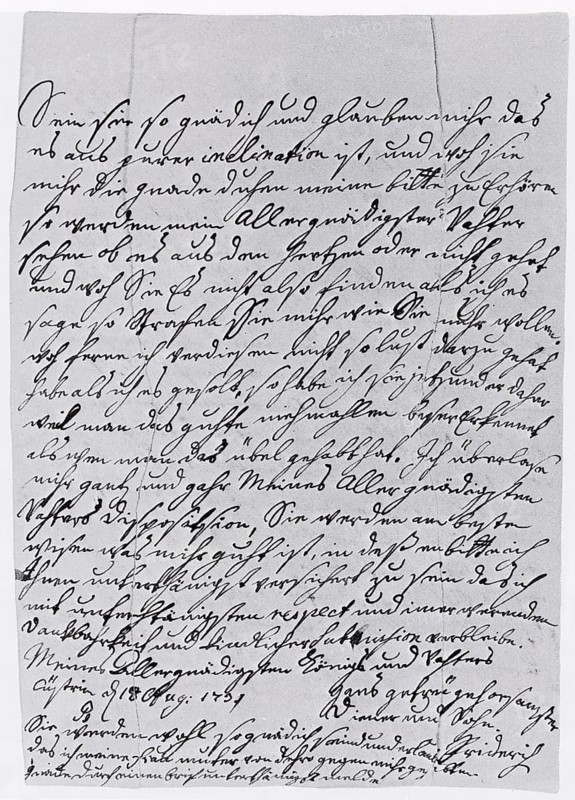 Sein sie so gnädich und glauben mihr das
es aus purer inclination ist, und woh sie
mihr die gnade duhen meine bitte zu Erhören
so werden mein Allergnädigster Vahter
sehen ob es aus den Hertzen oder nicht gehet
und woh Sie Es nicht also finden als ich es
sage so Strafen Sie mihr wie Sie nuhr wollen.
woh ferne ich verdiesen nicht so lust darzu gehat
habe als ich es gesolt, so habe ich sie jetzunder dahero
weil man das guhte niehmahlen besser Erkennet
als wen man das übel gehabt hat. Ich überlase
mihr gantz und gahr Meines Allergnädigsten
Vahters Disposission, Sie werden am beste
wisen was mihr guht ist, in deß en bitte ich
Ihnen unterthänigst versichert zu sein das ich
mit unterthänigsten respect und imerwerenden
Dankbahrkeit und kindlicher verbleibe.
Meines Allergnädigsten Königs und Vahters
Cüstrin d 18 Aug: 1731
gans getreü gehorsamster
Diener und Sohn
Friderich
Sie werden wohl so gnädich seind und erlauben
das ich meine frau muter vor dehro gegen mihr gehabten
gnade durch einen brif unterthänigst melde